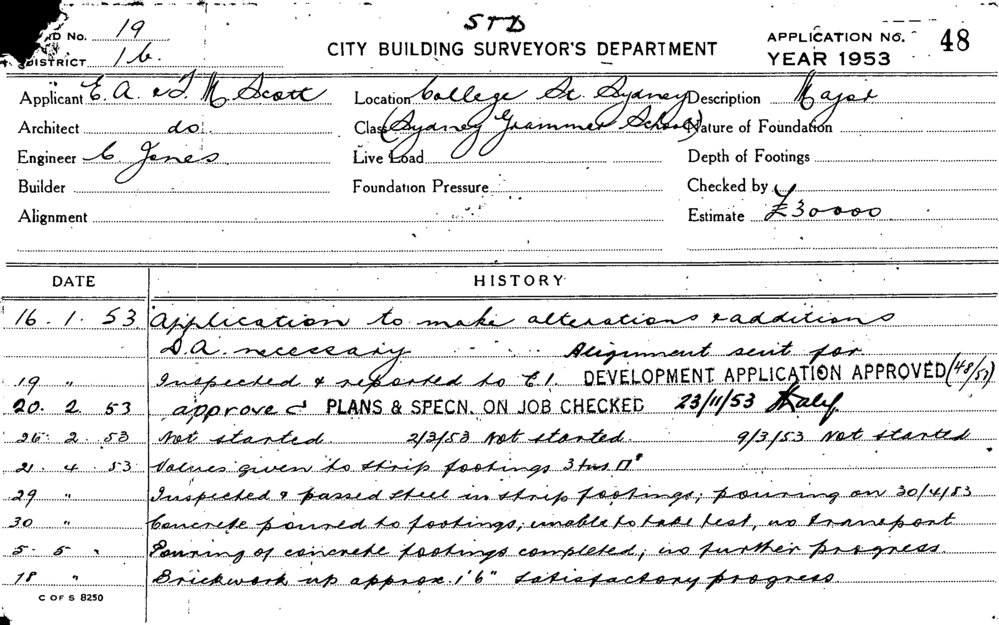 STD
D No. 19
DISTRICT 16.
CITY BUILDING SURVEYOR'S DEPARTMENT
APPLICATION No. 48
YEAR 1953
Applicant E. A. & T. M. Scott
Location College St. Sydney
Description Major
Architect do.
Class (Sydney Grammer School)
Nature of Foundation
Engineer C Jones
Live Load
Depth of Footings
Builder
Foundation Pressure
Checked by
Alignment
Estimate £30000
DATE HISTORY
16. 1. 53 Application to make alterations & additions
D.A. necessary Alignment sent for
19 " Inspected & reported to E1. DEVELOPMENT APPLICATION APPROVED (48/53)
20. 2. 53 approved PLANS & SPECN. ON JOB CHECKED 23/11/53
26. 2. 53 Not started. 2/3/53 Not started. 9/3/53 Not started
21. 4. 53 Values given to strip footings 3 tns
29 " Inspected & passed steel in strip footings; pouring on 30/4/53
30 " Concrete poured to footings; unable to take test, no transport
5. 5 " Pouring of concrete footings completed; no further progress
18 " Brickwork up approx. 1'6" satisfactory progress
C OF S 8250